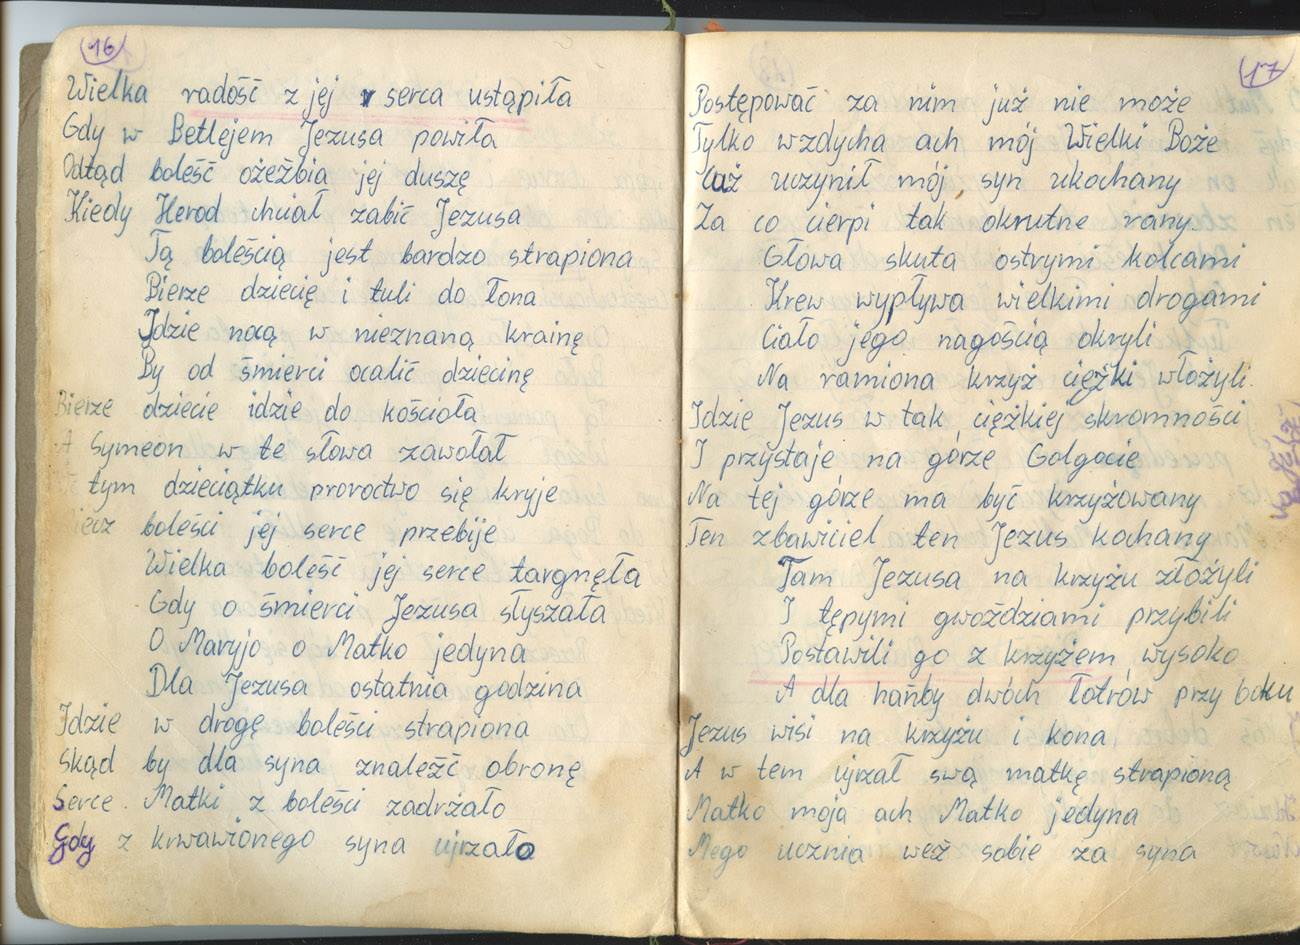 16
Wielka radość z jej serca ustąpiła
Gdy w Betlejem Jezusa powiła
Odtąd boleść ożeźbia jej duszę
Kiedy Herod chciał zabić Jezusa
Tą boleścią jest bardzo strapiona
Bierze dziecię i tuli do łona
Idzie nocą w nieznaną krainę
By od śmierci ocalić dziecinę
Bierze dziecie idzie do kościoła
A Symeon w te słowa zawołał
tym dzieciątku proroctwo się kryje
Miecz boleści jej serce przebije
Wielka boleść jej serce targnęła
Gdy o śmierci Jezusa słyszała
O Maryjo o Matko jedyna
Dla Jezusa ostatnia godzina
Idzie w drogę boleści strapiona
Skąd by dla syna znaleźć obronę
Serce Matki z boleści zadrżało
Gdy z krwawionego syna ujrzało
17
Postępować za nim już nie może
Tylko wzdycha ach mój Wielki Boże
Cuż uczynił mój syn ukochany
Za co cierpi tak okrutne rany
Głowa skuta ostrymi kolcami
Krew wypływa wielkimi drogami
Ciało jego nagością okryli
Na ramiona krzyż ciężki włożyli.
Idzie Jezus w tak ciężkiej skromności
I przystaje na górze Golgocie
Na tej górze ma być krzyżowany
Ten zbawiciel ten Jezus kochany
Tam Jezusa na krzyżu złożyli
I tępymi gwoździami przybili
Postawili go z krzyżem wysoko
A dla hańby dwóch łotrów przy boku
Jezus wisi na krzyżu i kona,
A w tem ujrzał swą matkę strapioną
Matko moja ach Matko jedyna
Mego ucznia weź sobie za syna